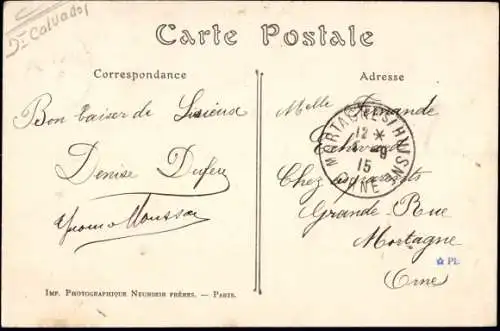 Dt Calvados
Carte Postale
Correspondance
Adresse
Bon baiser de Lisieux
Denise Dufeu
Melle Fernande
Chez ses parents
Grande Rue
Mortagne
Orne
MORTAGNE-S/HUISNE
12 *
9
15
ORNE
IMP. PHOTOGRAPHIQUE NEURDEIN FRÈRES. — PARIS.
PL